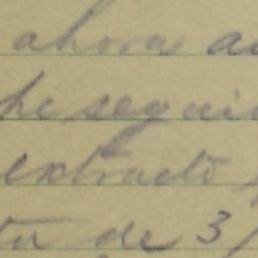 ahora a
he segui
extracto
ta de 3